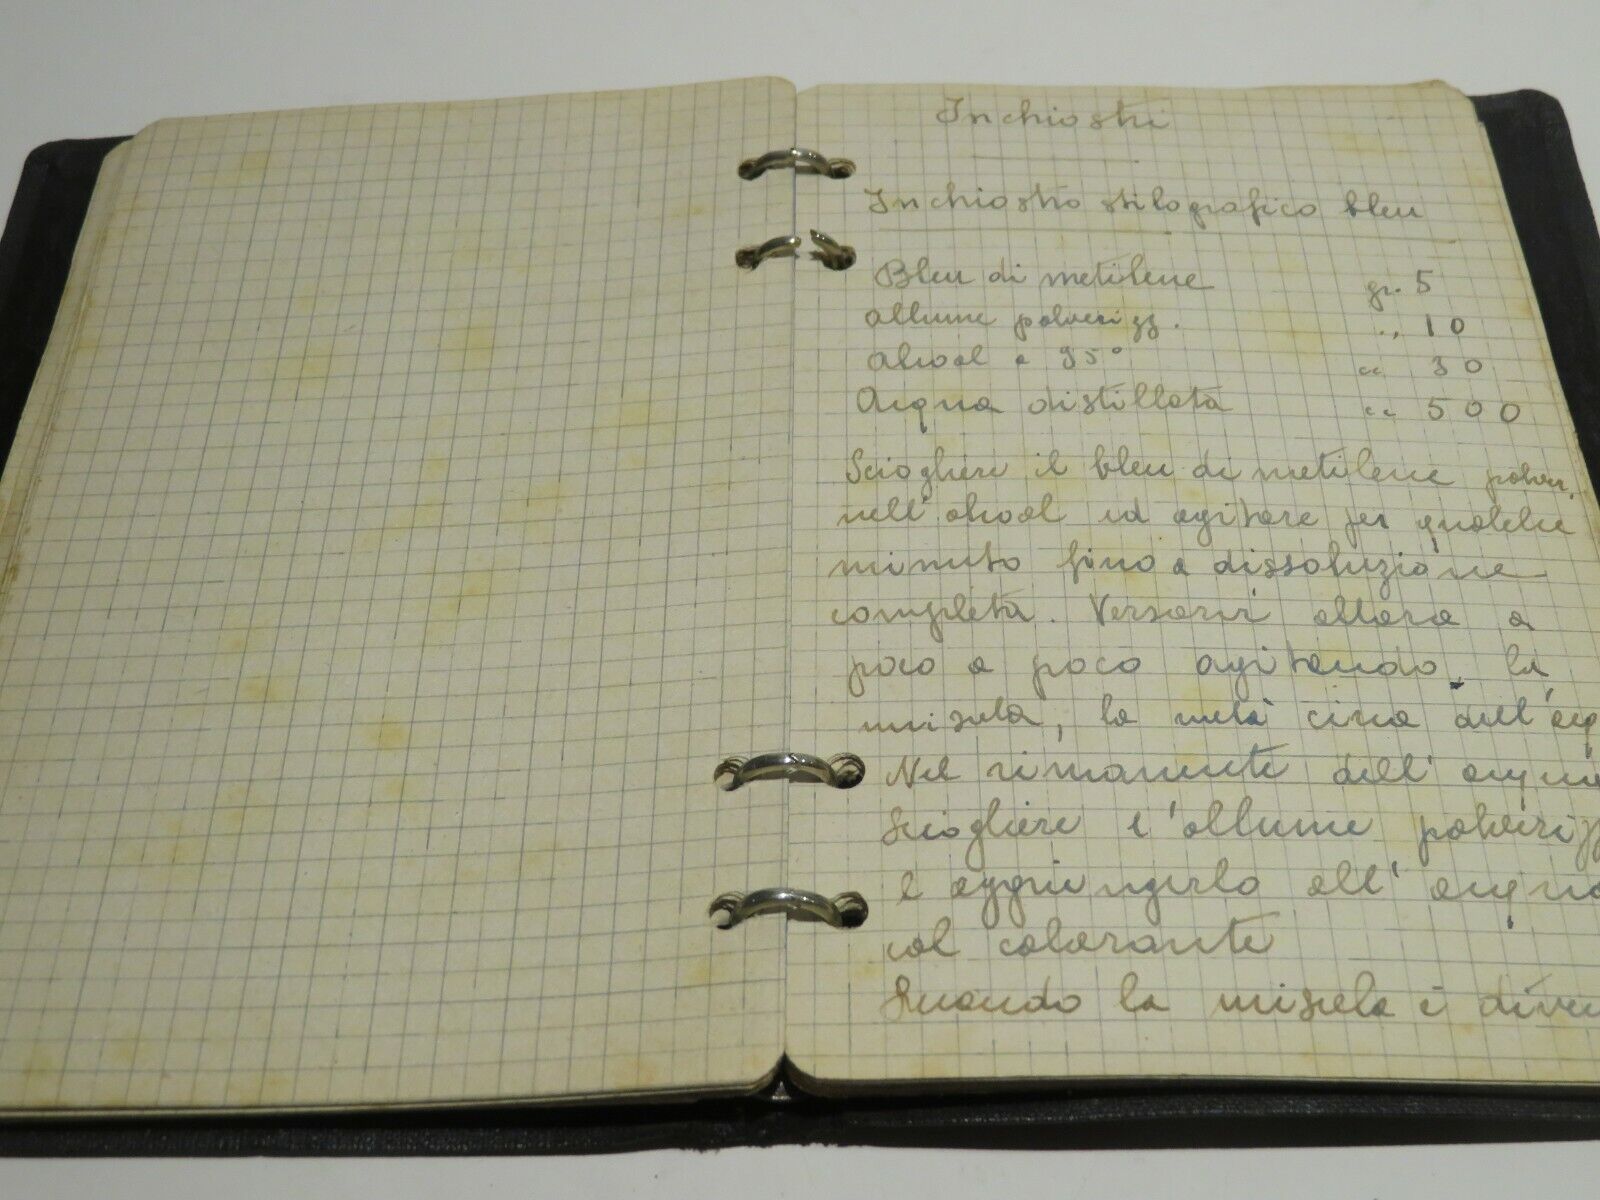 Inchiostri
Inchiostro stilografico bleu
Bleu di metilene gr. 5
Allume polverizz. " 10
Alcool a 95° " 30
Acqua distillata " 500
Sciogliere il bleu di metilene polver.
nell'alcool ed agitare per qualche
minuto fino a dissoluzione
completa. Versarvi allora a
poco a poco agitando, la
miscela, la metà circa dell'acq
Nel rimanente dell'acqua
sciogliere l'allume polverizz
e aggiungerlo all'acqua
col colorante
Quando la miscela è dive